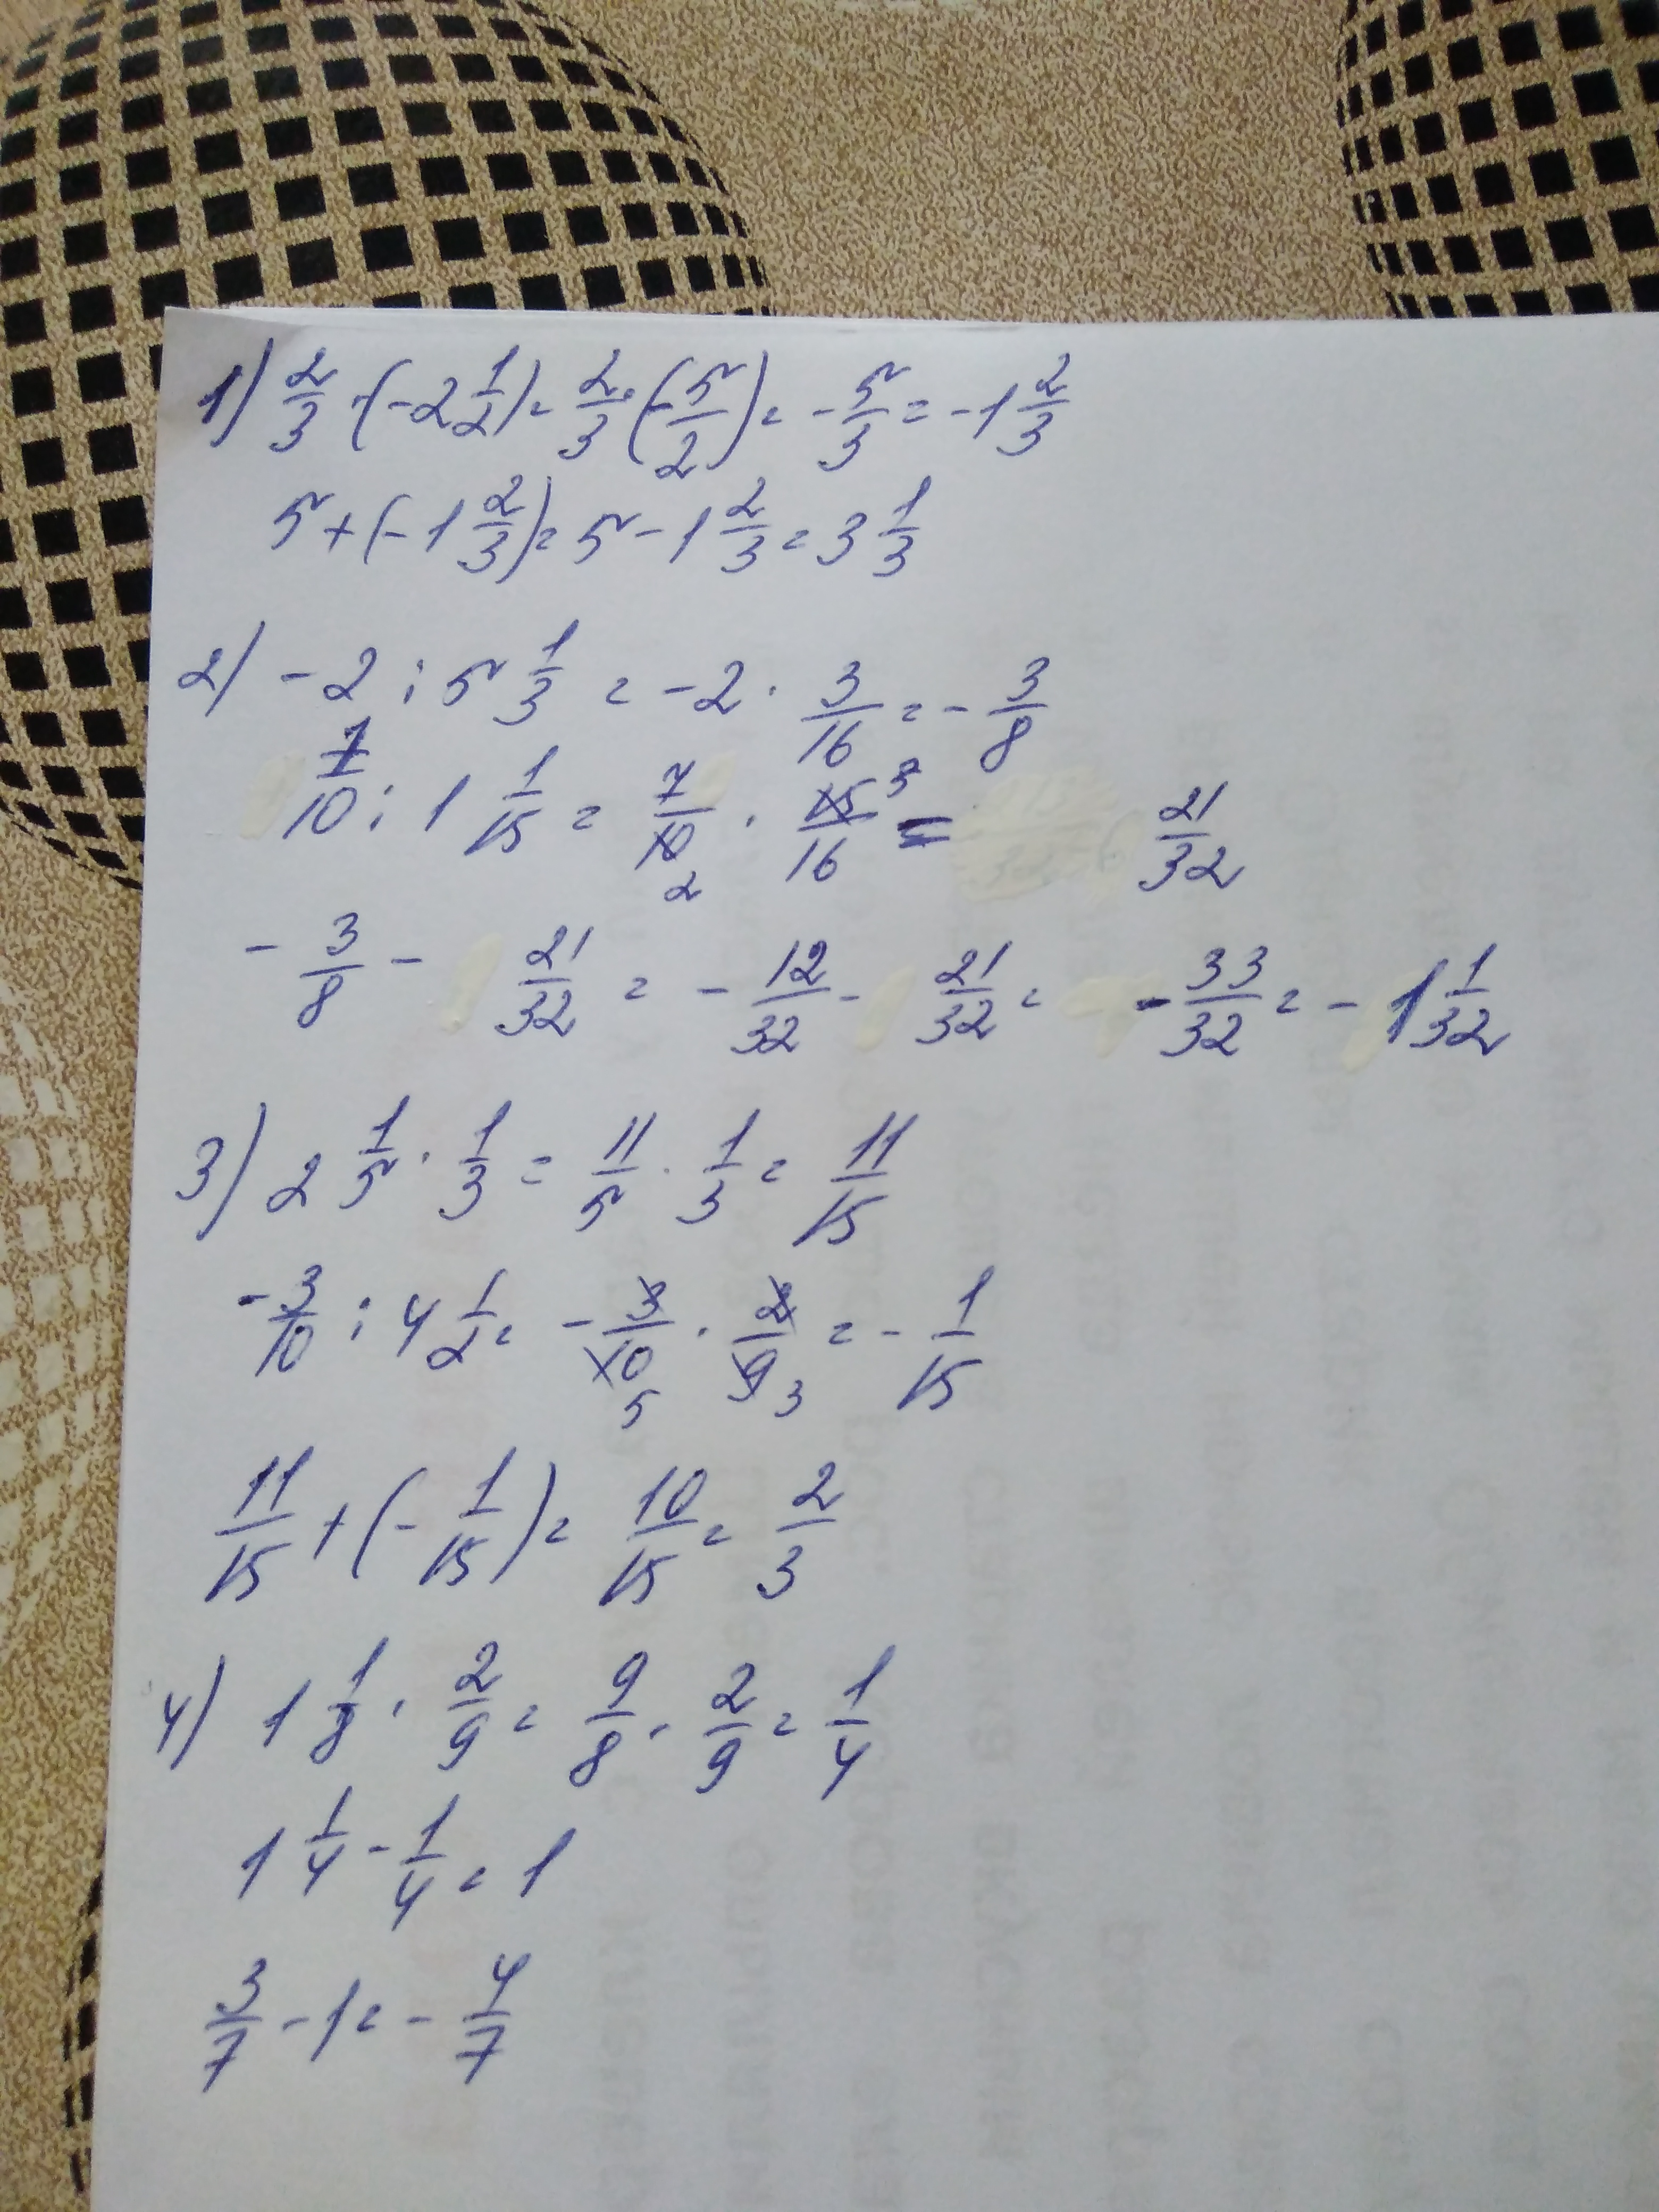 1) 2/3 · (-2 1/2) = 2/3 · (-5/2) = -5/3 = -1 2/3
5 + (-1 2/3) = 5 - 1 2/3 = 3 1/3
2) -2 : 5 1/3 = -2 · 3/16 = -3/8
7/10 : 1 1/15 = 7/10 2 · 15/16 3 = 21/32
-3/8 - 21/32 = -12/32 - 21/32 = -33/32 = -1 1/32
3) 2 1/5 · 1/3 = 11/5 · 1/3 = 11/15
-3/10 : 4 1/2 = -3/10 5 · 2/9 3 = -1/15
11/15 + (-1/15) = 10/15 = 2/3
4) 1 1/8 · 2/9 = 9/8 · 2/9 = 1/4
1 1/4 - 1/4 = 1
3/7 - 1 = -4/7